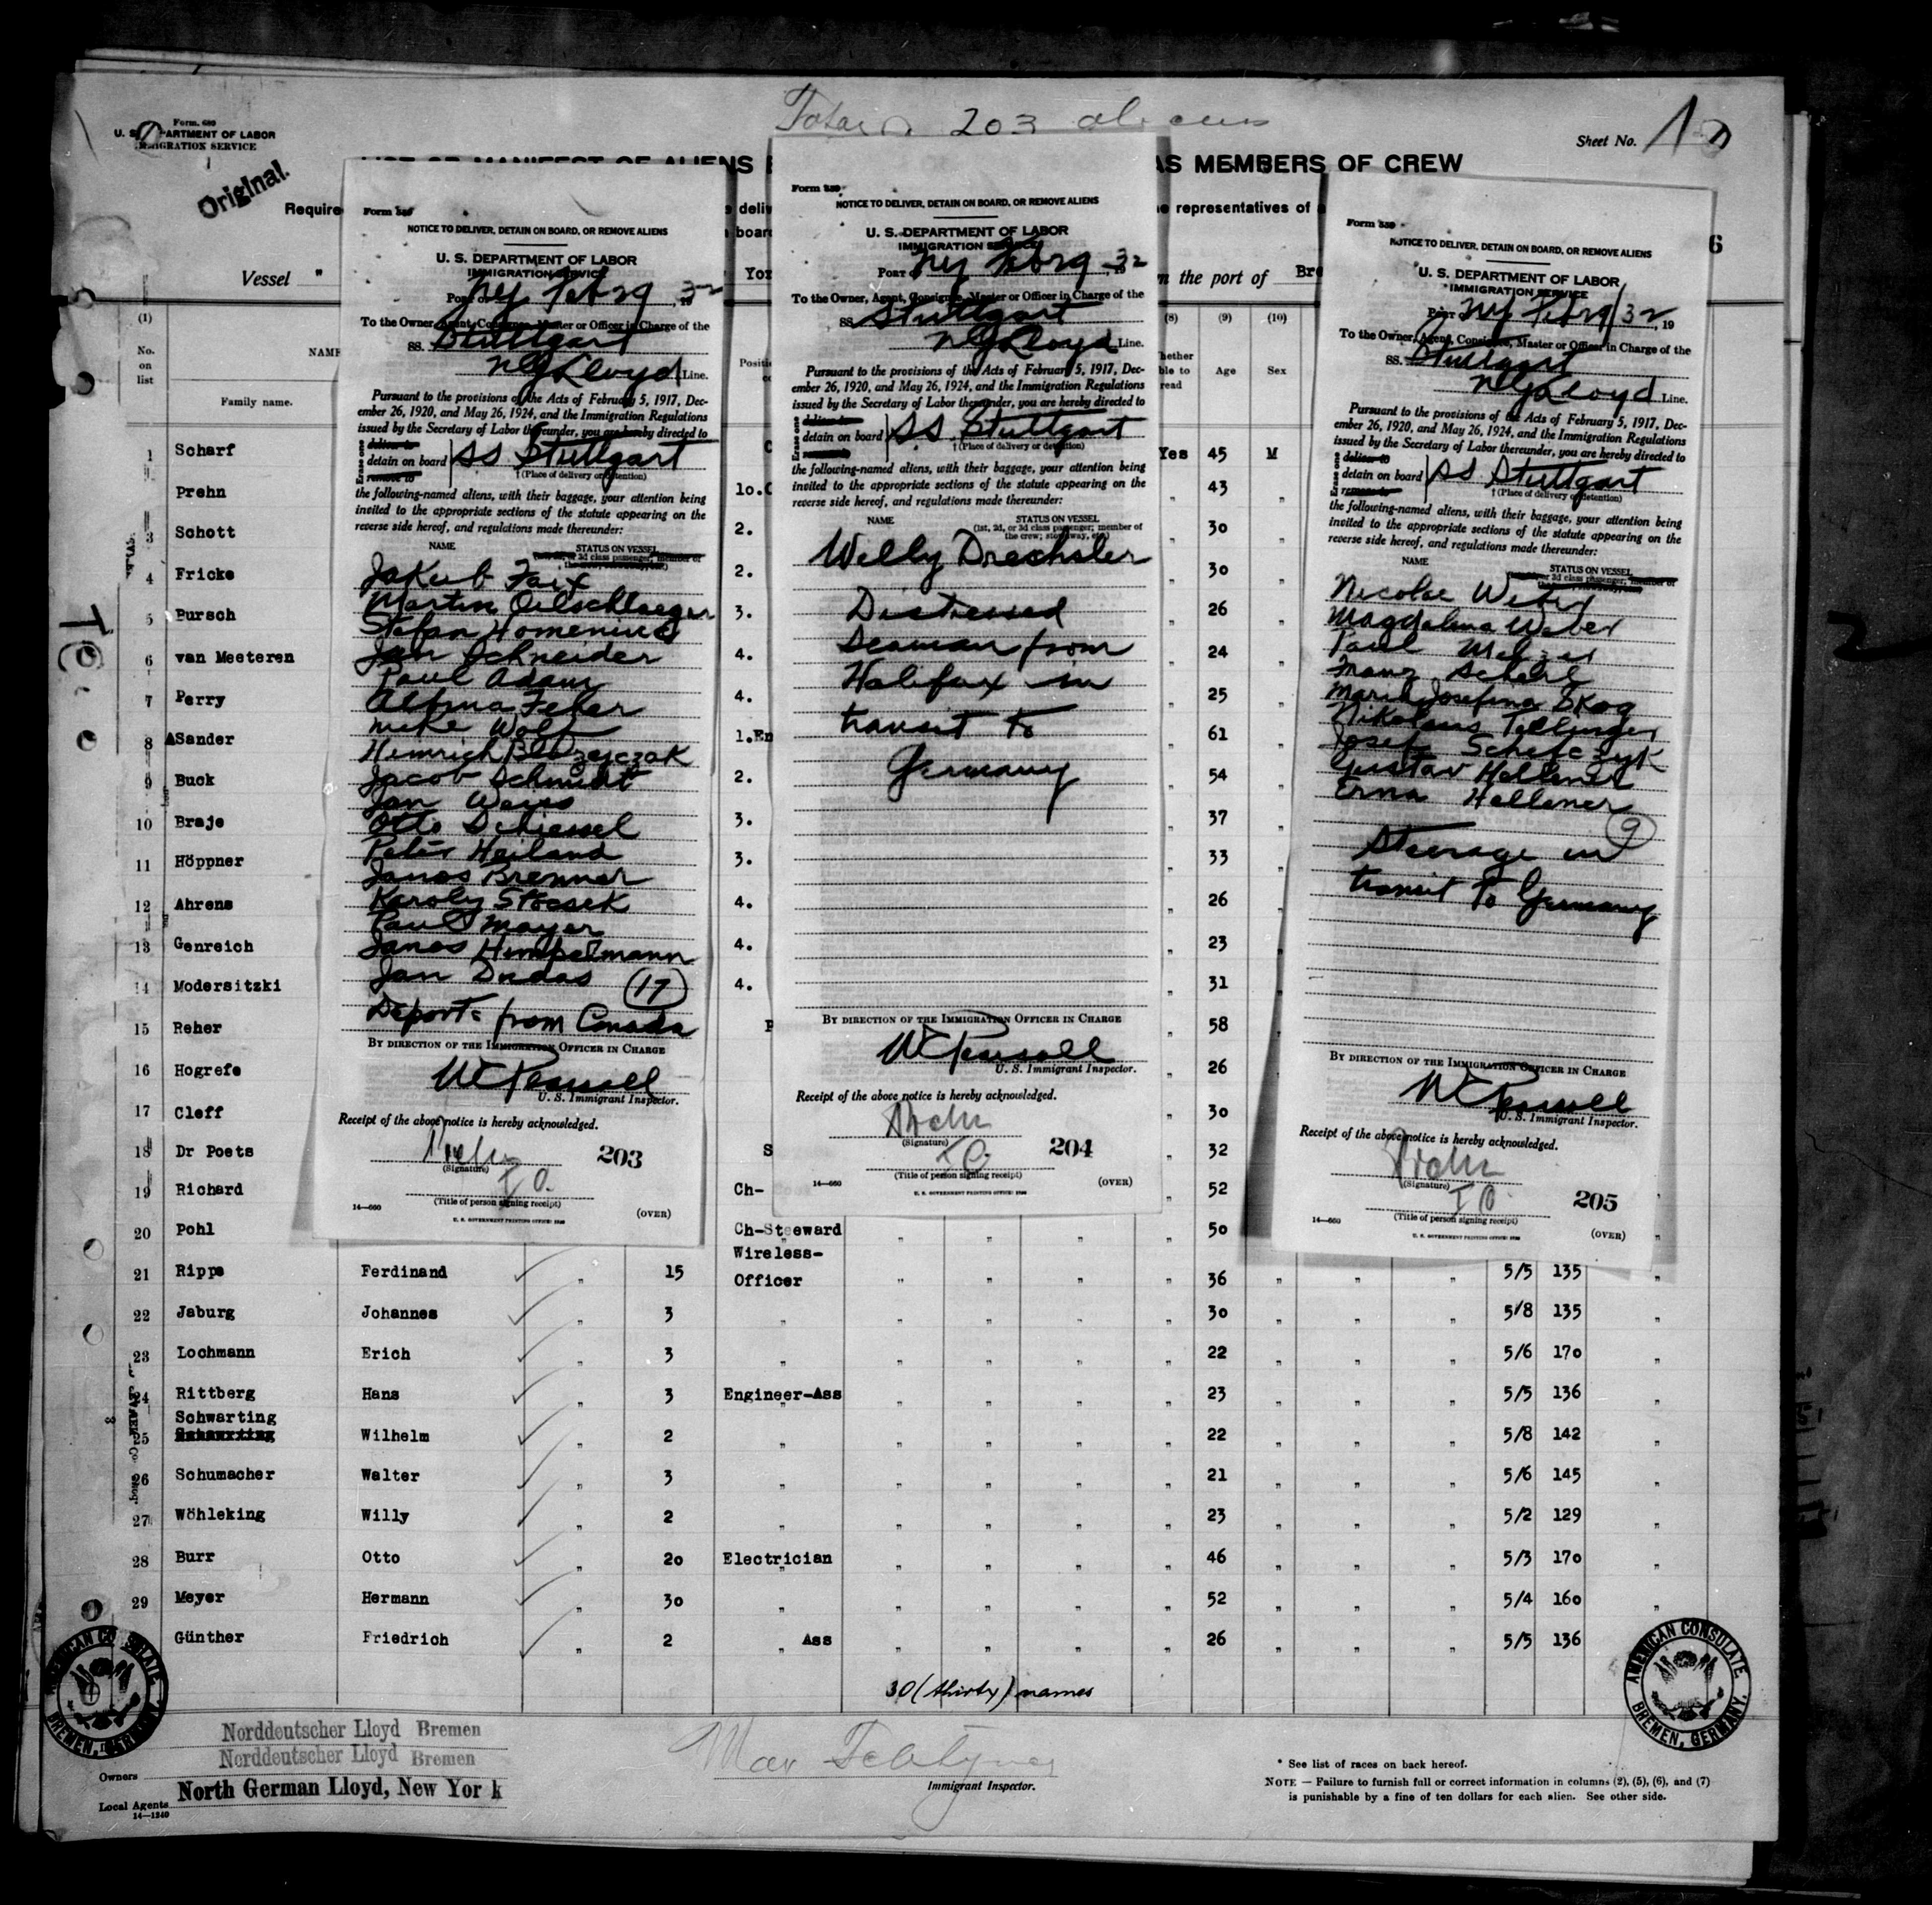 Total 203 aliens
Form 689
U. S. DEPARTMENT OF LABOR
IMMIGRATION SERVICE
Original.
Sheet No. 1
LIST OR MANIFEST OF ALIENS
AS MEMBERS OF CREW
Require
representatives of
Vessel "
Yor
the port of Br
6
(1)
No.
on
list
NAME
Family name.
Positi
(8)
(9)
(10)
read
Age
Sex
Form
NOTICE TO DELIVER, DETAIN ON BOARD, OR REMOVE ALIENS
U. S. DEPARTMENT OF LABOR
IMMIGRATION SERVICE
Port of NY Feb 29, 1932
To the Owner, Agent, Consignee, Master or Officer in Charge of the
SS. Stuttgart
NG Lloyd Line.
Pursuant to the provisions of the Acts of February 5, 1917, Dec-
ember 26, 1920, and May 26, 1924, and the Immigration Regulations
issued by the Secretary of Labor thereunder, you are hereby directed to
Erase one
deliver to
detain on board SS Stuttgart
remove to
† (Place of delivery or detention)
the following-named aliens, with their baggage, your attention being
invited to the appropriate sections of the statute appearing on the
reverse side hereof, and regulations made thereunder:
NAME
STATUS ON VESSEL
Jakub Faix
Martin Oelschlaeger
Stefan Homeniuc
Jan Schneider
Paul Adam
Altma Feher
Mike Wolf
Heinrich Blazejczak
Jacob Schmidt
Jan Weiss
Otto Schiessel
Peter Heiland
Janos Brenner
Karoly Stocsek
Paul Mayer
Janos Himpelmann
Jan Dudas (17)
Deports from Canada
BY DIRECTION OF THE IMMIGRATION OFFICER IN CHARGE
U. S. Immigrant Inspector.
Receipt of the above notice is hereby acknowledged.
(Signature)
203
I O.
(Title of person signing receipt)
14—660
(OVER)
Form
NOTICE TO DELIVER, DETAIN ON BOARD, OR REMOVE ALIENS
U. S. DEPARTMENT OF LABOR
IMMIGRATION SERVICE
Port of NY Feb 29, 1932
To the Owner, Agent, Consignee, Master or Officer in Charge of the
SS. Stuttgart
NG Lloyd Line.
Pursuant to the provisions of the Acts of February 5, 1917, Dec-
ember 26, 1920, and May 26, 1924, and the Immigration Regulations
issued by the Secretary of Labor thereunder, you are hereby directed to
Erase one
deliver to
detain on board SS Stuttgart
remove to
† (Place of delivery or detention)
the following-named aliens, with their baggage, your attention being
invited to the appropriate sections of the statute appearing on the
reverse side hereof, and regulations made thereunder:
NAME
STATUS ON VESSEL
(1st, 2d, or 3d class passenger; member of
the crew; stowaway, etc.)
Willy Drechsler
Distressed
Seaman from
Halifax in
transit to
Germany
BY DIRECTION OF THE IMMIGRATION OFFICER IN CHARGE
U. S. Immigrant Inspector.
Receipt of the above notice is hereby acknowledged.
(Signature)
204
I O.
(Title of person signing receipt)
14—660
(OVER)
Form
NOTICE TO DELIVER, DETAIN ON BOARD, OR REMOVE ALIENS
U. S. DEPARTMENT OF LABOR
IMMIGRATION SERVICE
Port NY Feb 29/32, 19
To the Owner, Agent, Consignee, Master or Officer in Charge of the
SS. Stuttgart
NG Lloyd Line.
Pursuant to the provisions of the Acts of February 5, 1917, Dec-
ember 26, 1920, and May 26, 1924, and the Immigration Regulations
issued by the Secretary of Labor thereunder, you are hereby directed to
Erase one
deliver to
detain on board SS Stuttgart
remove to
† (Place of delivery or detention)
the following-named aliens, with their baggage, your attention being
invited to the appropriate sections of the statute appearing on the
reverse side hereof, and regulations made thereunder:
NAME
STATUS ON VESSEL
Nicolae Weber
Magdalena Weber
Paul Melzer
Franz Scherl
Maria Josefina Skog
Nikolaus Tellinger
Josef Schefczyk
Gustav Hellener
Erna Hellener
(9)
Steerage in
transit to Germany
BY DIRECTION OF THE IMMIGRATION OFFICER IN CHARGE
U. S. Immigrant Inspector.
Receipt of the above notice is hereby acknowledged.
(Signature)
205
I O.
(Title of person signing receipt)
14—660
(OVER)
1 Scharf Yes 45 M
Prehn 1o. 43 "
3 Schott 2. " 30 "
4 Fricke 2. " 30 "
5 Bursch 3. " 26 "
6 van Meeteren 4. " 24 "
7 Perry 4. " 25 "
8 Sander 1.En " 61 "
9 Buck 2. " 54 "
10 Braje 3. " 37 "
11 Höppner 3. " 33 "
12 Ahrens 4. " 26 "
13 Genreich 4. " 23 "
14 Modersitzki 4. " 31 "
15 Reher " 58
16 Hogrefe " 26
17 Cleff " 30
18 Dr Poets S " 32
19 Richard Ch- " 52
20 Pohl Ch-Steeward " " " " 50
Wireless-
21 Rippe Ferdinand " 15 Officer " " " " 36 " " " 5/5 135 "
22 Jaburg Johannes " 3 " " " " " 30 " " " 5/8 135 "
23 Lochmann Erich " 3 " " " " " 22 " " " 5/6 170 "
24 Rittberg Hans " 3 Engineer-Ass " " " " 23 " " " 5/5 136 "
Schwarting
25 Wilhelm " 2 " " " " " 22 " " " 5/8 142 "
26 Schumacher Walter " 3 " " " " " 21 " " " 5/6 145 "
27 Wöhleking Willy " 2 " " " " " 23 " " " 5/2 129 "
28 Burr Otto " 20 Electrician " " " " 46 " " " 5/3 170 "
29 Meyer Hermann " 30 " " " " " 52 " " " 5/4 160 "
Günther Friedrich " 2 " Ass " " " " 26 " " " 5/5 136 "
30 (thirty) names
AMERICAN CONSULATE
BREMEN, GERMANY.
AMERICAN CONSULATE
BREMEN, GERMANY.
Norddeutscher Lloyd Bremen
Norddeutscher Lloyd Bremen
Owners
North German Lloyd, New York
Local Agents
14—1240
Immigrant Inspector.
* See list of races on back hereof.
NOTE — Failure to furnish full or correct information in columns (2), (5), (6), and (7)
is punishable by a fine of ten dollars for each alien. See other side.